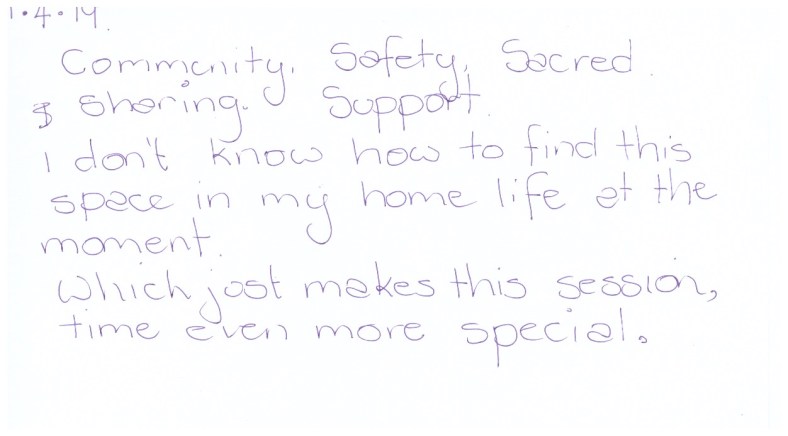 1.4.14.
Community. Safety, Sacred.
& Sharing. Support.
I don't know how to find this
space in my home life at the
moment.
Which just makes this session,
time even more special.